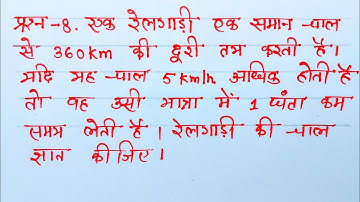 प्रश्न-8. एक रेलगाड़ी एक समान चाल
से 360km की दूरी तय करती है।
यदि यह चाल 5km/h अधिक होती है
तो वह उसी यात्रा में 1 घंटा कम
समय लेती है। रेलगाड़ी की चाल
ज्ञात कीजिए।